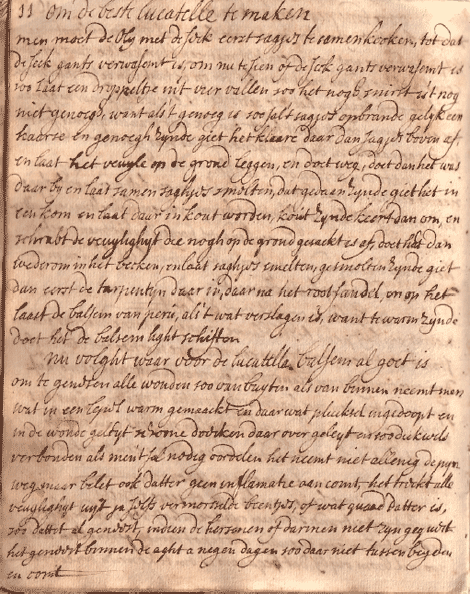 11 om de beste lucatelle te maken
men moet de oly met de seck eerst sagjes te samen kooken, tot dat
de seck gants verwasemt is, om nu te sien of de seck gants verwasemt is
soo laat een dryppeltie int vier vallen soo het nogh snirst is't nogh
niet genoegh, want als't genoegh is soo salt sagjes opbrande gelyk een
kaerse en genoegh zynde giet het klaare daar dan sagjes boven af,
en laat het veuyle op de grond leggen, en doet wegh, doet dan het was
daar by en laat samen saghjes smolten, dat gedaen zynde giet het in
een kom en laat daar in kout worden, kout zynde keert dan om, en
schrabt de veuylighyt die nogh op de grond gesackt is af, doet het dan
wederom in het becken, en laat saghjes smelten, gesmolten zynde giet
dan eerst de tarpentyn daar in, daar na het root sandel, en op het
laast de balsem van peru, als't wat verslagen is, want te warm zynde
doet het de belsem light schiften
Nu volght waar voor de lucatella balsem al goet is
om te genesen alle wonden soo van buyten als van binnen neemt men
wat in een lepel warm gemaackt en daar wat plucksel ingedoopt en
in de wonde geleyt, schoone doecken daar over geleyt en soo dickwels
verbonden als men't sal nodig oordelen het neemt niet alleenig de pyn
wegh maar belet ook datter geen inflamatie aan comt, het treckt alle
veuylighyt uyt ja selfs vermorselde beentjes, of wat quaad datter is,
soo dattet al geneest, indien de hersenen of darmen niet zyn gequest
het geneest binnen de aght a negen dagen soo daar niet tussen beyden
en comt